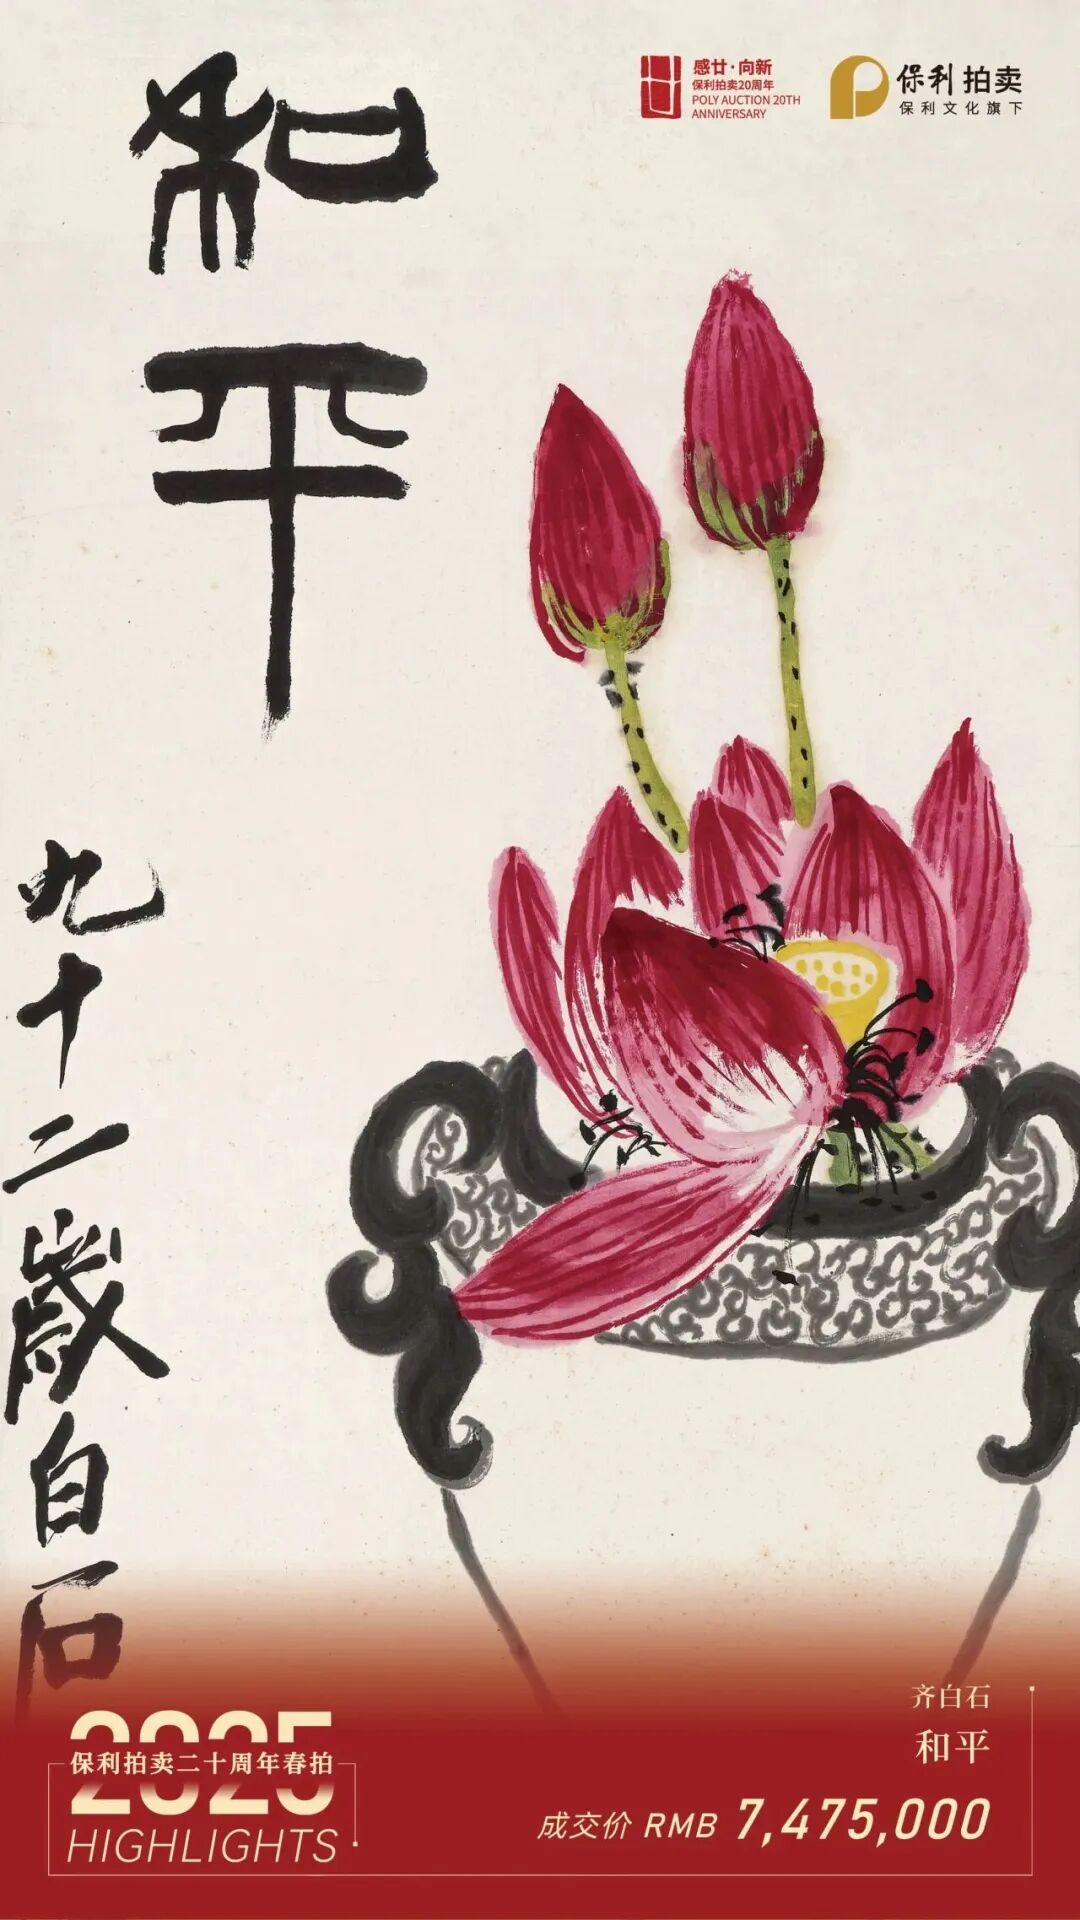 感廿·向新
保利拍卖20周年
POLY AUCTION 20TH
ANNIVERSARY
保利拍卖
保利文化旗下
和平
九十二歲白石
2025
保利拍卖二十周年春拍
HIGHLIGHTS
齐白石
和平
成交价 RMB 7,475,000